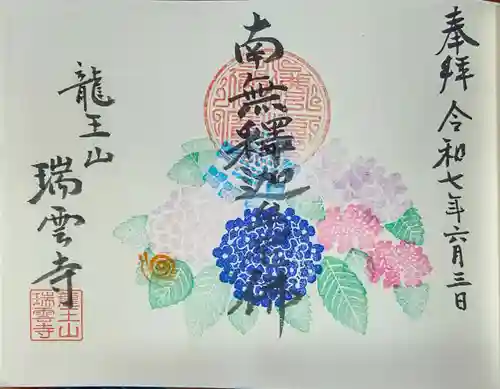 奉拝 令和七年六月三日
南無釋迦牟尼佛
龍王山
瑞雲寺
龍王山
瑞雲寺